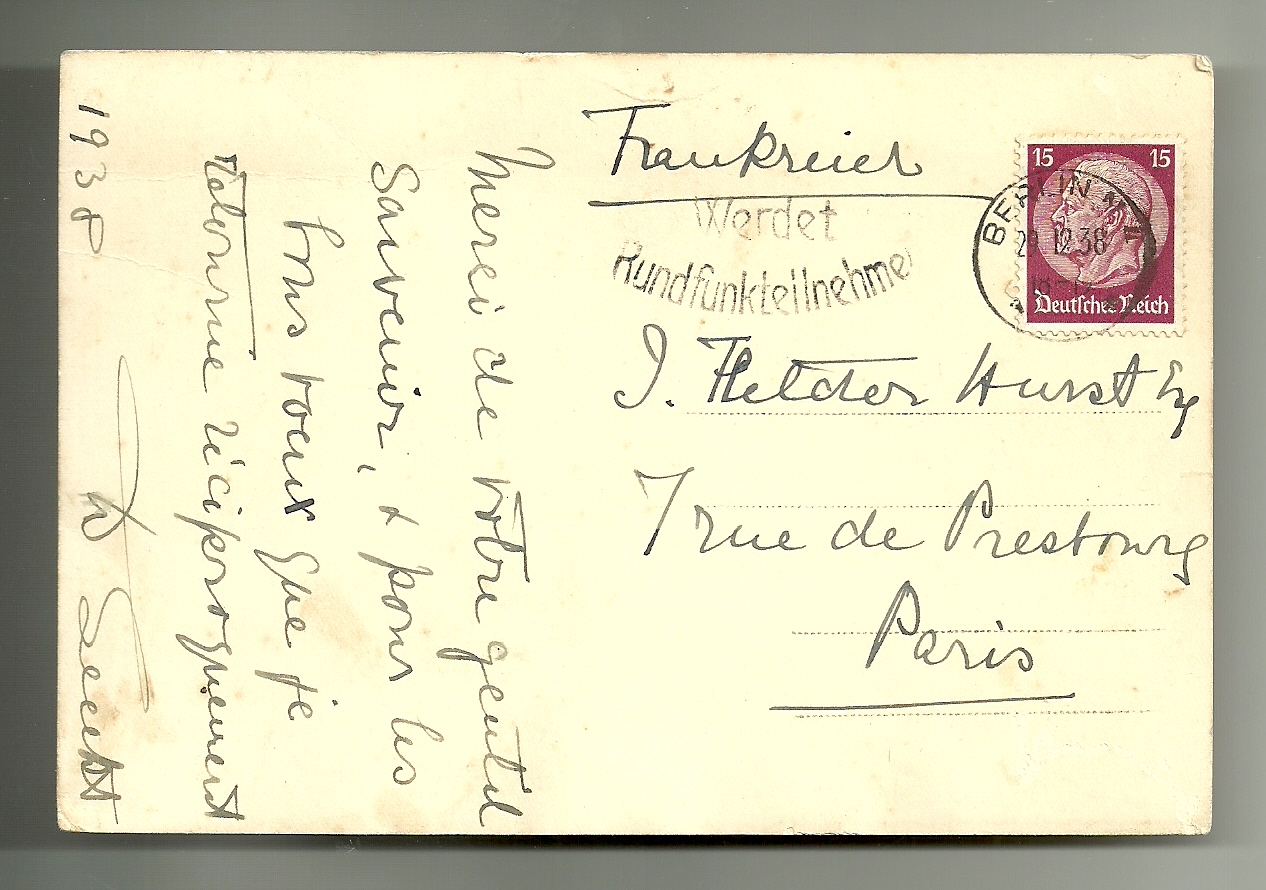 Merci de votre gentil
Souvenir, & pour les
bons voeux que je
retourne réciproquement
1938
Frankreich
Werdet
Rundfunkteilnehmer
15 15
BERLIN
12.38
Deutsches Reich
J. Fletcher Hurst Esq
7 rue de Presbourg
Paris